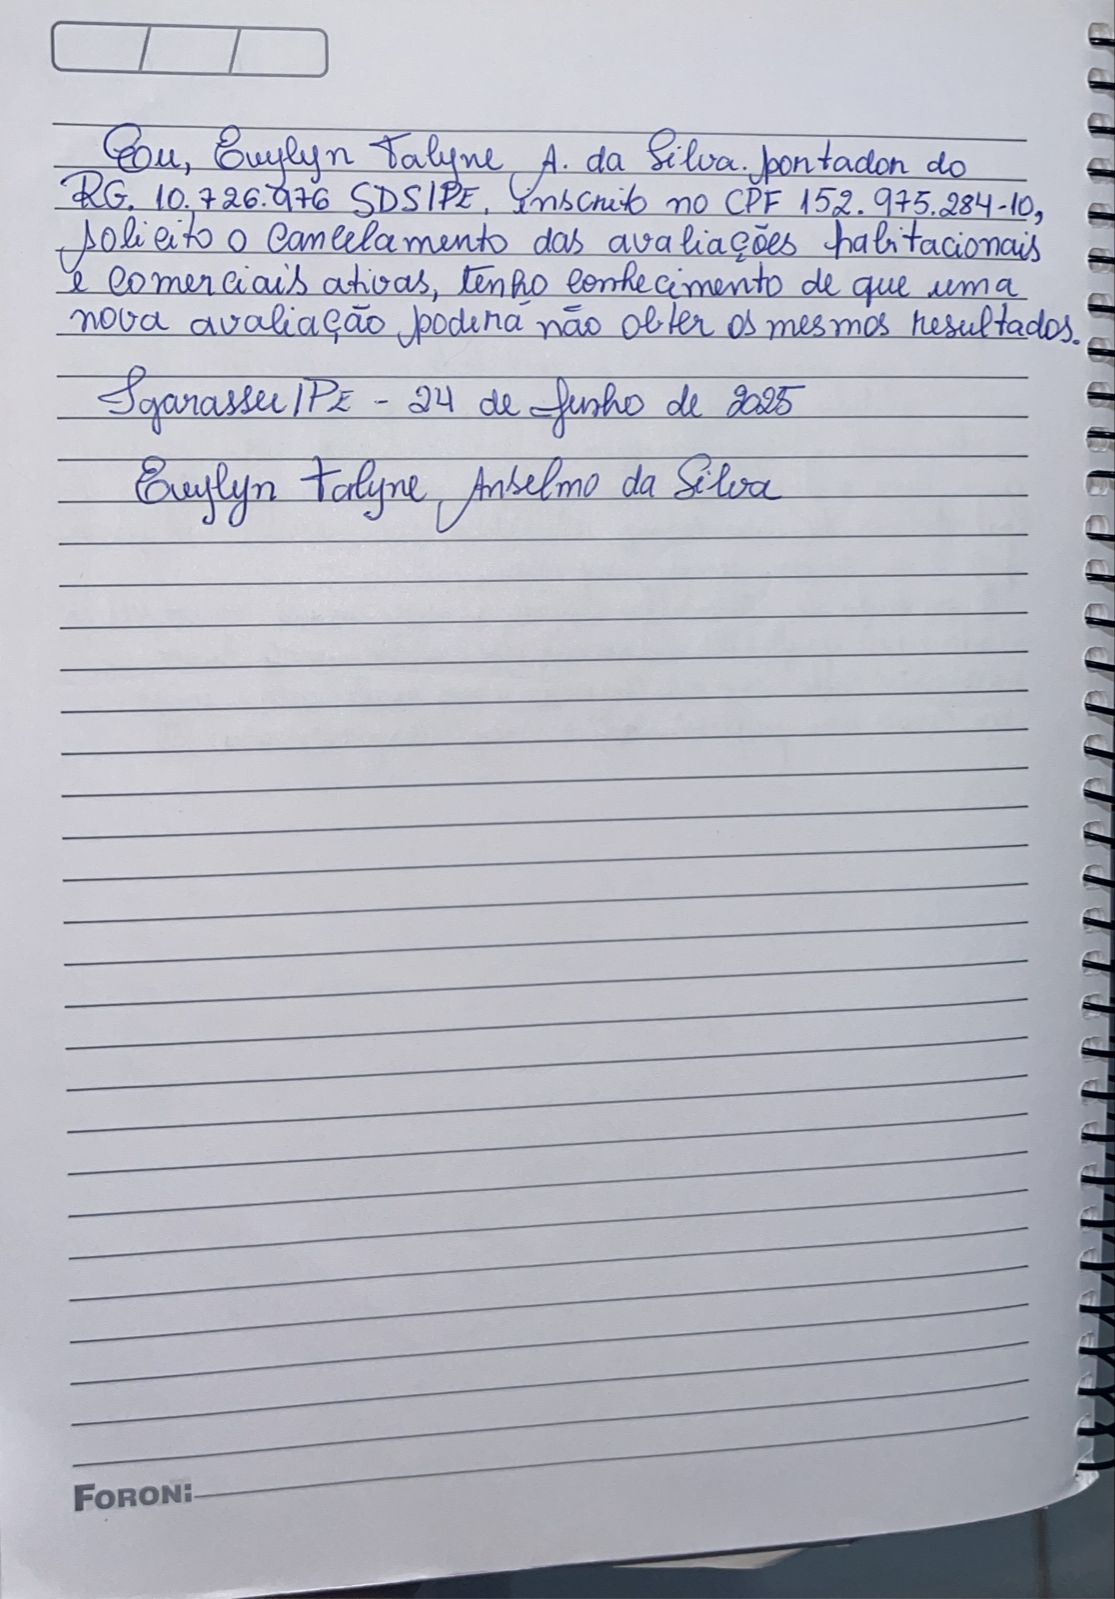 Eu, Evylyn Talyne A. da Silva. portador do
RG. 10.726.976 SDS/PE, inscrito no CPF 152.975.284-10,
solicito o cancelamento das avaliações habitacionais
e comerciais ativas, tenho conhecimento de que uma
nova avaliação poderá não obter os mesmos resultados.
Igarassu/PE - 24 de Junho de 2025
Evylyn Talyne Anselmo da Silva
FORONI